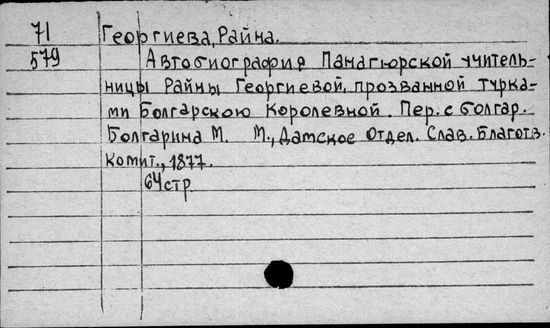 71 Георгиева, Райна.
579 Автобиография Панагюрской учитель-
ницы Райны Георгиевой, прозванной турка-
ми Болгарскою Королевной. Пер. с болгар.
Болгарина М. М., Дамское Отдел. Слав. Благотв.
комит., 1877.
64 стр.